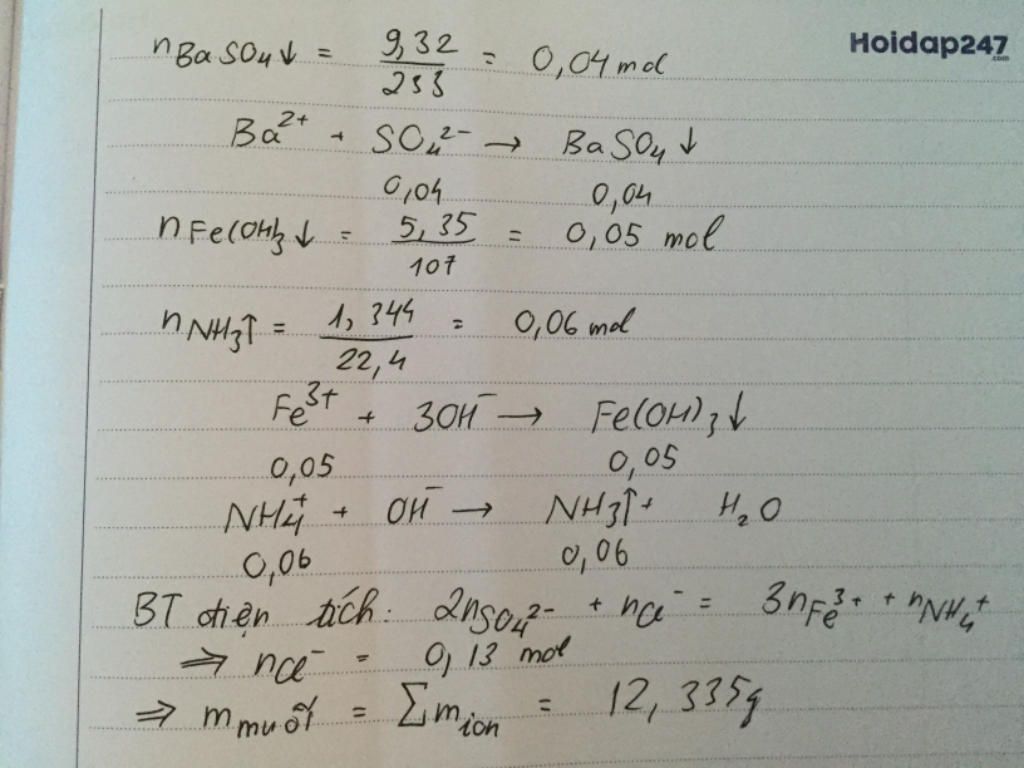 Hoidap247
.com
nBaSO₄↓ = 9,32/233 = 0,04 mol
Ba²⁺ + SO₄²⁻ → BaSO₄↓
0,04 0,04
nFe(OH)₃↓ = 5,35/107 = 0,05 mol
nNH₃↑ = 1,344/22,4 = 0,06 mol
Fe³⁺ + 3OH⁻ → Fe(OH)₃↓
0,05 0,05
NH₄⁺ + OH⁻ → NH₃↑ + H₂O
0,06 0,06
BT điện tích: 2nSO₄²⁻ + nCl⁻ = 3nFe³⁺ + nNH₄⁺
⇒ nCl⁻ = 0,13 mol
⇒ mmuối = ∑mion = 12,335g